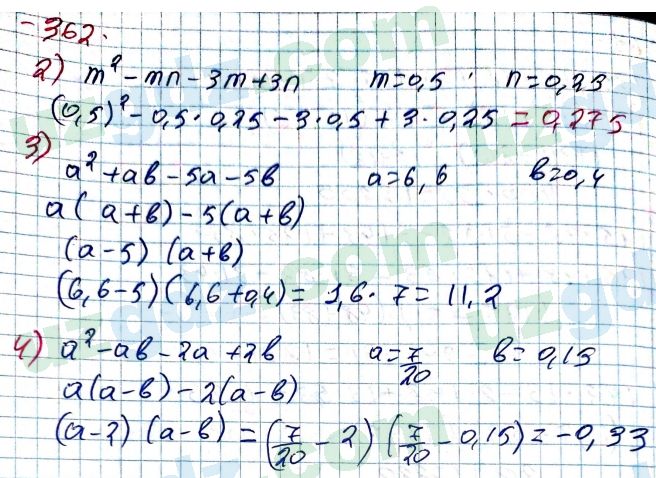 362.
2) m² - mn - 3m + 3n m = 0,5 n = 0,25
(0,5)² - 0,5 · 0,25 - 3 · 0,5 + 3 · 0,25 = 0,275
3)
a² + ab - 5a - 5b a = 6,6 b = 0,4
a(a + b) - 5(a + b)
(a - 5) (a + b)
(6,6 - 5)(6,6 + 0,4) = 1,6 · 7 = 11,2
4) a² - ab - 2a + 2b a = 7/20 b = 0,15
a(a - b) - 2(a - b)
(a - 2) (a - b) = (7/20 - 2) (7/20 - 0,15) = -0,33
uzgdz.com